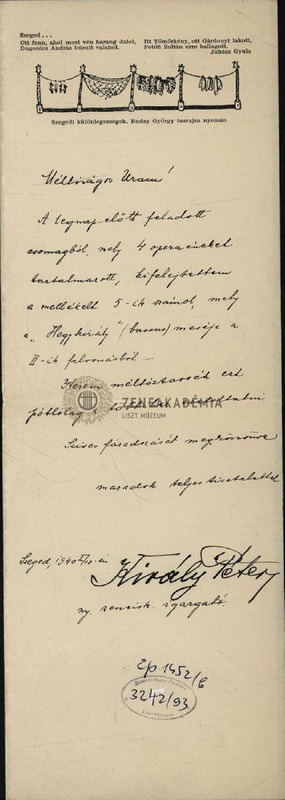 Szeged . . .
Ott fenn, ahol most vén harang dalol,
Dugonics András húzult valahol.
Itt Tömörkény, ott Gárdonyi lakott,
Petőfi Zoltán erre ballagott.
Juhász Gyula
Szegedi különlegességek. Buday György tusrajza nyomán
Méltóságos Uram!
A tegnap előtt feladott
csomagból, mely 4 opera éneket
tartalmazott, kifelejtettem
a mellékelt 5-ik számot, mely
a „Hegykirály" (bassus) meséje a
II-ik felvonásból –
Kérem méltóztassék ezt
pótlólag a többihez
ZENEAKADÉMIA
LISZT MÚZEUM
Szives fáradozását megköszönve
maradok teljes tisztelettel
Szeged, 1940
Király Péter
ny. zeneisk. igazgató
Ép 1452/6
3242/93